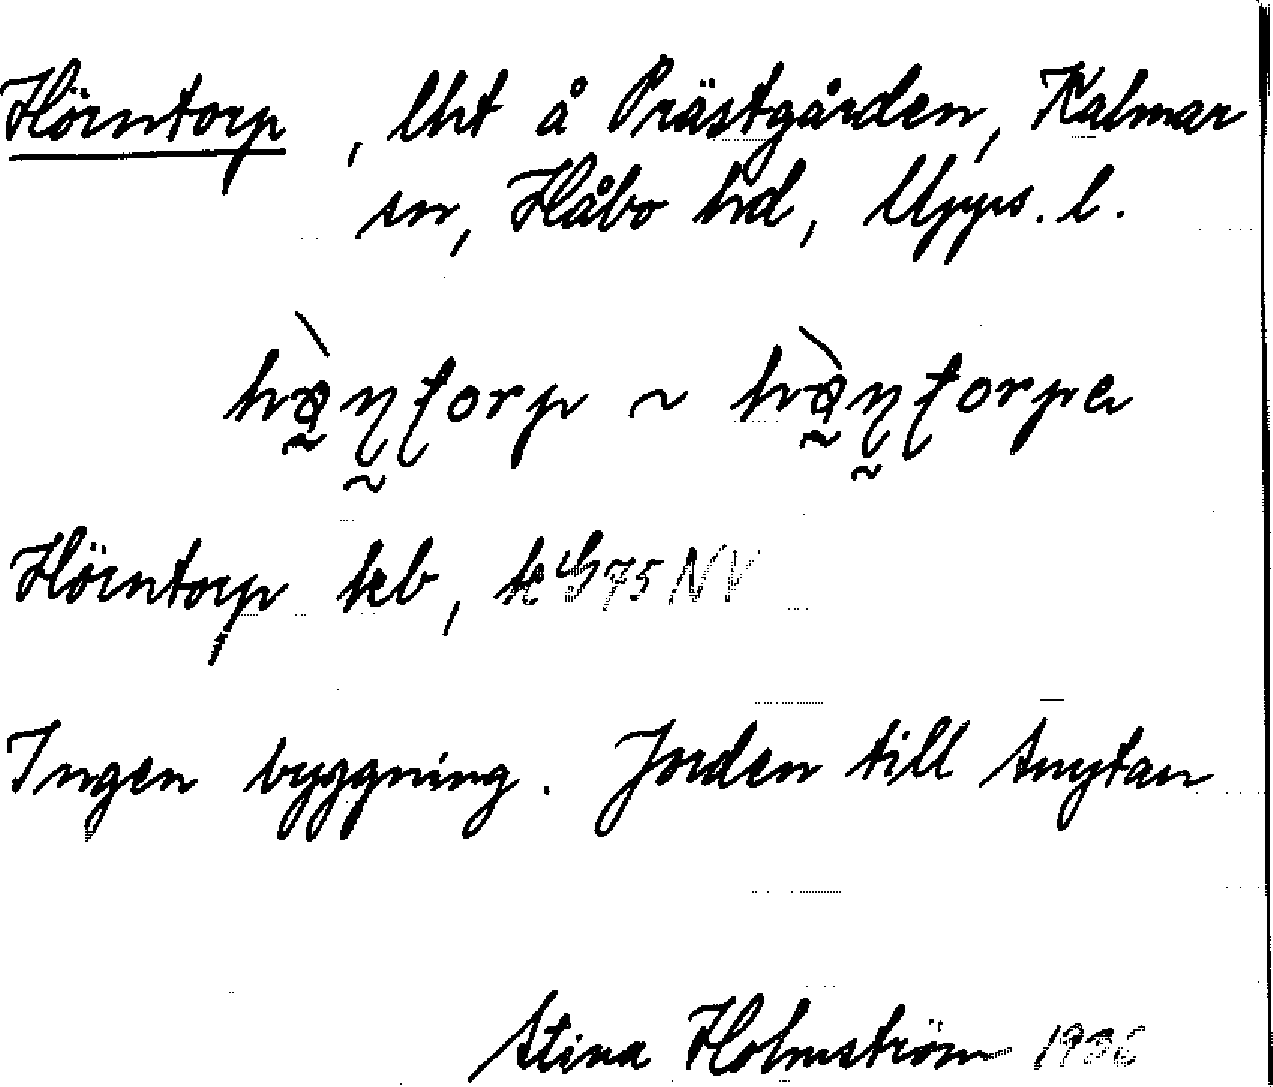 Hörntorp, lht å Prästgården, Kalmar
sn, Håbo hd, Upps. l.
Hörntorp keb, k
75 NV
Ingen byggning. Jorden till Snytan
Stina Holmström 1936